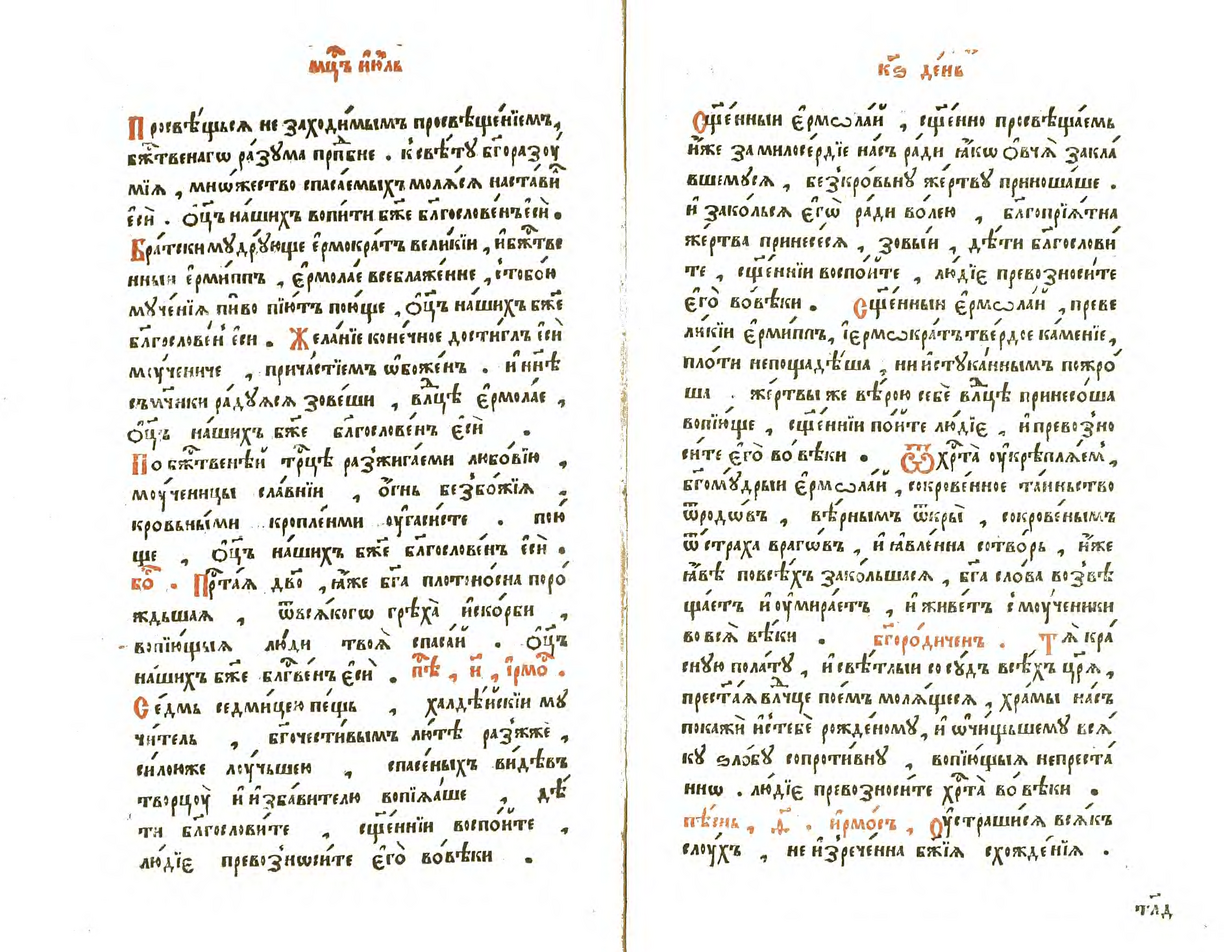 мцⷭ҇ъ ию́ль
Просвѣ́щьсѧ не заходи́мымъ просвѣще́нїемъ,
бж҃твенагѡ ра́зума прпⷣбне . к свѣ́ту бг҃оразоу
мїѧ , мнѡ́жество спаса́емыхъ молѧ́сѧ наста́ви
є҆сѝ . Ѻц҃ъ на́шихъ вопи́ти бж҃е блг҃ослове́нъ є҆сѝ .
Бра́тски мꙋ́дрꙋюще є҆рмокра́тъ вели́кїи , и҆ бж҃тве
нныи є҆рми́ппъ , є҆рмола́е всеблаже́нне , с тобо́ю
мꙋче́нїѧ пи́во пїю́тъ пою́ще , Ѻц҃ъ на́шихъ бж҃е
блг҃ослове́н є҆си . Жела́нїе коне́чное дости́глъ є҆сѝ
мо́учениче , прича́стїемъ ѡ҆бо́женъ . и҆ нн҃ѣ
съ мч҃нки ра́дꙋѧсѧ зове́ши , влⷣцѣ є҆рмола́е ,
Ѻц҃ъ на́шихъ бж҃е блг҃ослове́нъ є҆сѝ .
По бж҃твенѣ́й трⷪ҇цѣ разжига́еми любо́вїю ,
мо́ученицы сла́внїи , ѻ҆́гнь безбо́жїѧ ,
кро́вьными кропле́нми оу҆гаси́сте . пою
ще , Ѻц҃ъ на́шихъ бж҃е блг҃ослове́нъ є҆сѝ .
бо҃ . Прⷭ҇таѧ дв҃о , ꙗ҆́же бг҃а плотоно́сна поро
ждьшаѧ , ѿ всѧ́когѡ грѣха̀ и҆ ско́рби ,
вопїю́щыѧ лю́ди твоѧ̀ спаса́й . Ѻц҃ъ
на́шихъ бж҃е блгⷭ҇ве́нъ є҆сѝ . пѣⷭ҇ , и҃ , і҆рмоⷭ҇ .
Се́дмь седми́цею пе́щь , халдѣ́йскїи мꙋ
чи́тель , бг҃очести́вымъ лю́тѣ разжжѐ ,
си́лою же лоу́чьшею , спасе́ныхъ ви́дѣвъ
творцоу̀ и҆ и҆зба́вителю вопїѧ́ше , дѣ́
ти блг҃ослови́те , сщ҃е́ннїи воспо́йте ,
лю́дїє превозноси́те є҆го̀ во вѣ́ки .
кѕ҃ де́нь
Сщ҃е́нныи є҆рмѡла́й , сщ҃е́нно просвѣща́емь
и҆́же за милосе́рдїе на́съ ра́ди ꙗ҆́кѡ ѻ҆вчѧ̀ закла́
вшемꙋсѧ , безкро́вьнꙋ же́ртвꙋ приноша́ше .
и҆ зако́льсѧ є҆гѡ̀ ра́ди во́лею , блг҃опрїѧ́тна
же́ртва принесе́сѧ , зовы́и , дѣ́ти блг҃ослови́
те , сщ҃е́ннїи воспо́йте , лю́дїє превозноси́те
є҆го̀ во вѣ́ки . Сщ҃е́нныи є҆рмѡла́й , преве
ли́кїи є҆рми́ппъ, і҆ є҆рмѡкра́тъ тве́рдое ка́менїе,
пло́ти непощадѣ́ша , ни и҆стꙋка́ннымъ пожро́
ша . же́ртвы же вѣ́рою себѐ влⷣцѣ принесо́ша
вопїю́ще , сщ҃е́ннїи по́йте лю́дїє , и҆ превозно
си́те є҆го̀ во вѣ́ки . Ѿ хрⷭ҇та̀ оу҆крѣплѧ́ем ,
бг҃омꙋ́дрыи є҆рмѡла́й , сокрове́нное та́иньство
ѿ родѡ́въ , вѣ́рнымъ ѿкры̀ , сокрове́нымъ
ѿ стра́ха врагѡ́въ , и҆ ꙗ҆вле́нна сотво́рь , и҆́же
ꙗ҆́вѣ по всѣ́хъ зако́льшасѧ , бг҃а сло́ва возвѣ
ща́етъ и҆ оу҆мира́етъ , и҆ живе́тъ с мо́ученики
во всѧ̀ вѣ́ки . бг҃оро́диченъ . Тѧ̀ кра́
снꙋю пола́тꙋ , и҆ свѣ́тлыи сосꙋ́дъ всѣ́хъ цр҃ѧ̀ ,
прест҃аѧ влⷣчце пое́мъ молѧ́щесѧ , хра́мы на́съ
покажѝ и҆с тебѐ рожде́номꙋ , и҆ ѡ҆чи́щьшемꙋ всѧ́
кꙋ ѕло́бꙋ сопроти́внꙋ , вопїю́щыѧ непреста́
ннѡ . лю́дїє превозноси́те хрⷭ҇та̀ во вѣ́ки .
пѣ́снь , ѳ҃ . и҆рмо́съ , Оу҆страши́сѧ всѧ́къ
слоу́хъ , не и҆зрече́нна бж҃їѧ схожде́нїѧ .
тл҃д